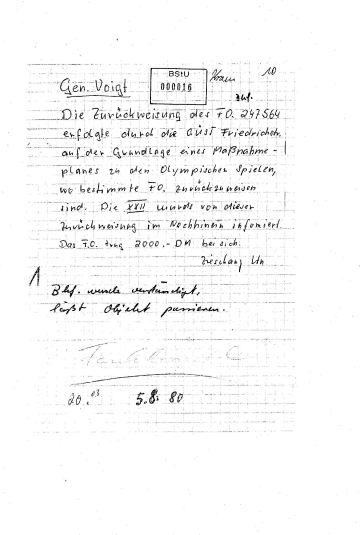 BStU
000016
10
Gen. Voigt
Die Zurückweisung des F.O. 247564
erfolgte durch die GÜST Friedrichstr.
auf der Grundlage eines Maßnahme-
planes zu den Olympischen Spielen,
wo bestimmte F.O. zurückzuweisen
sind. Die XXII wurde von dieser
Zurückweisung im Nachhinein informiert.
Das F.O. trug 2000.- DM bei sich.
Zieschang Ltn
Bhf. wurde verständigt,
läßt Objekt passieren.
20.03 5.8.80